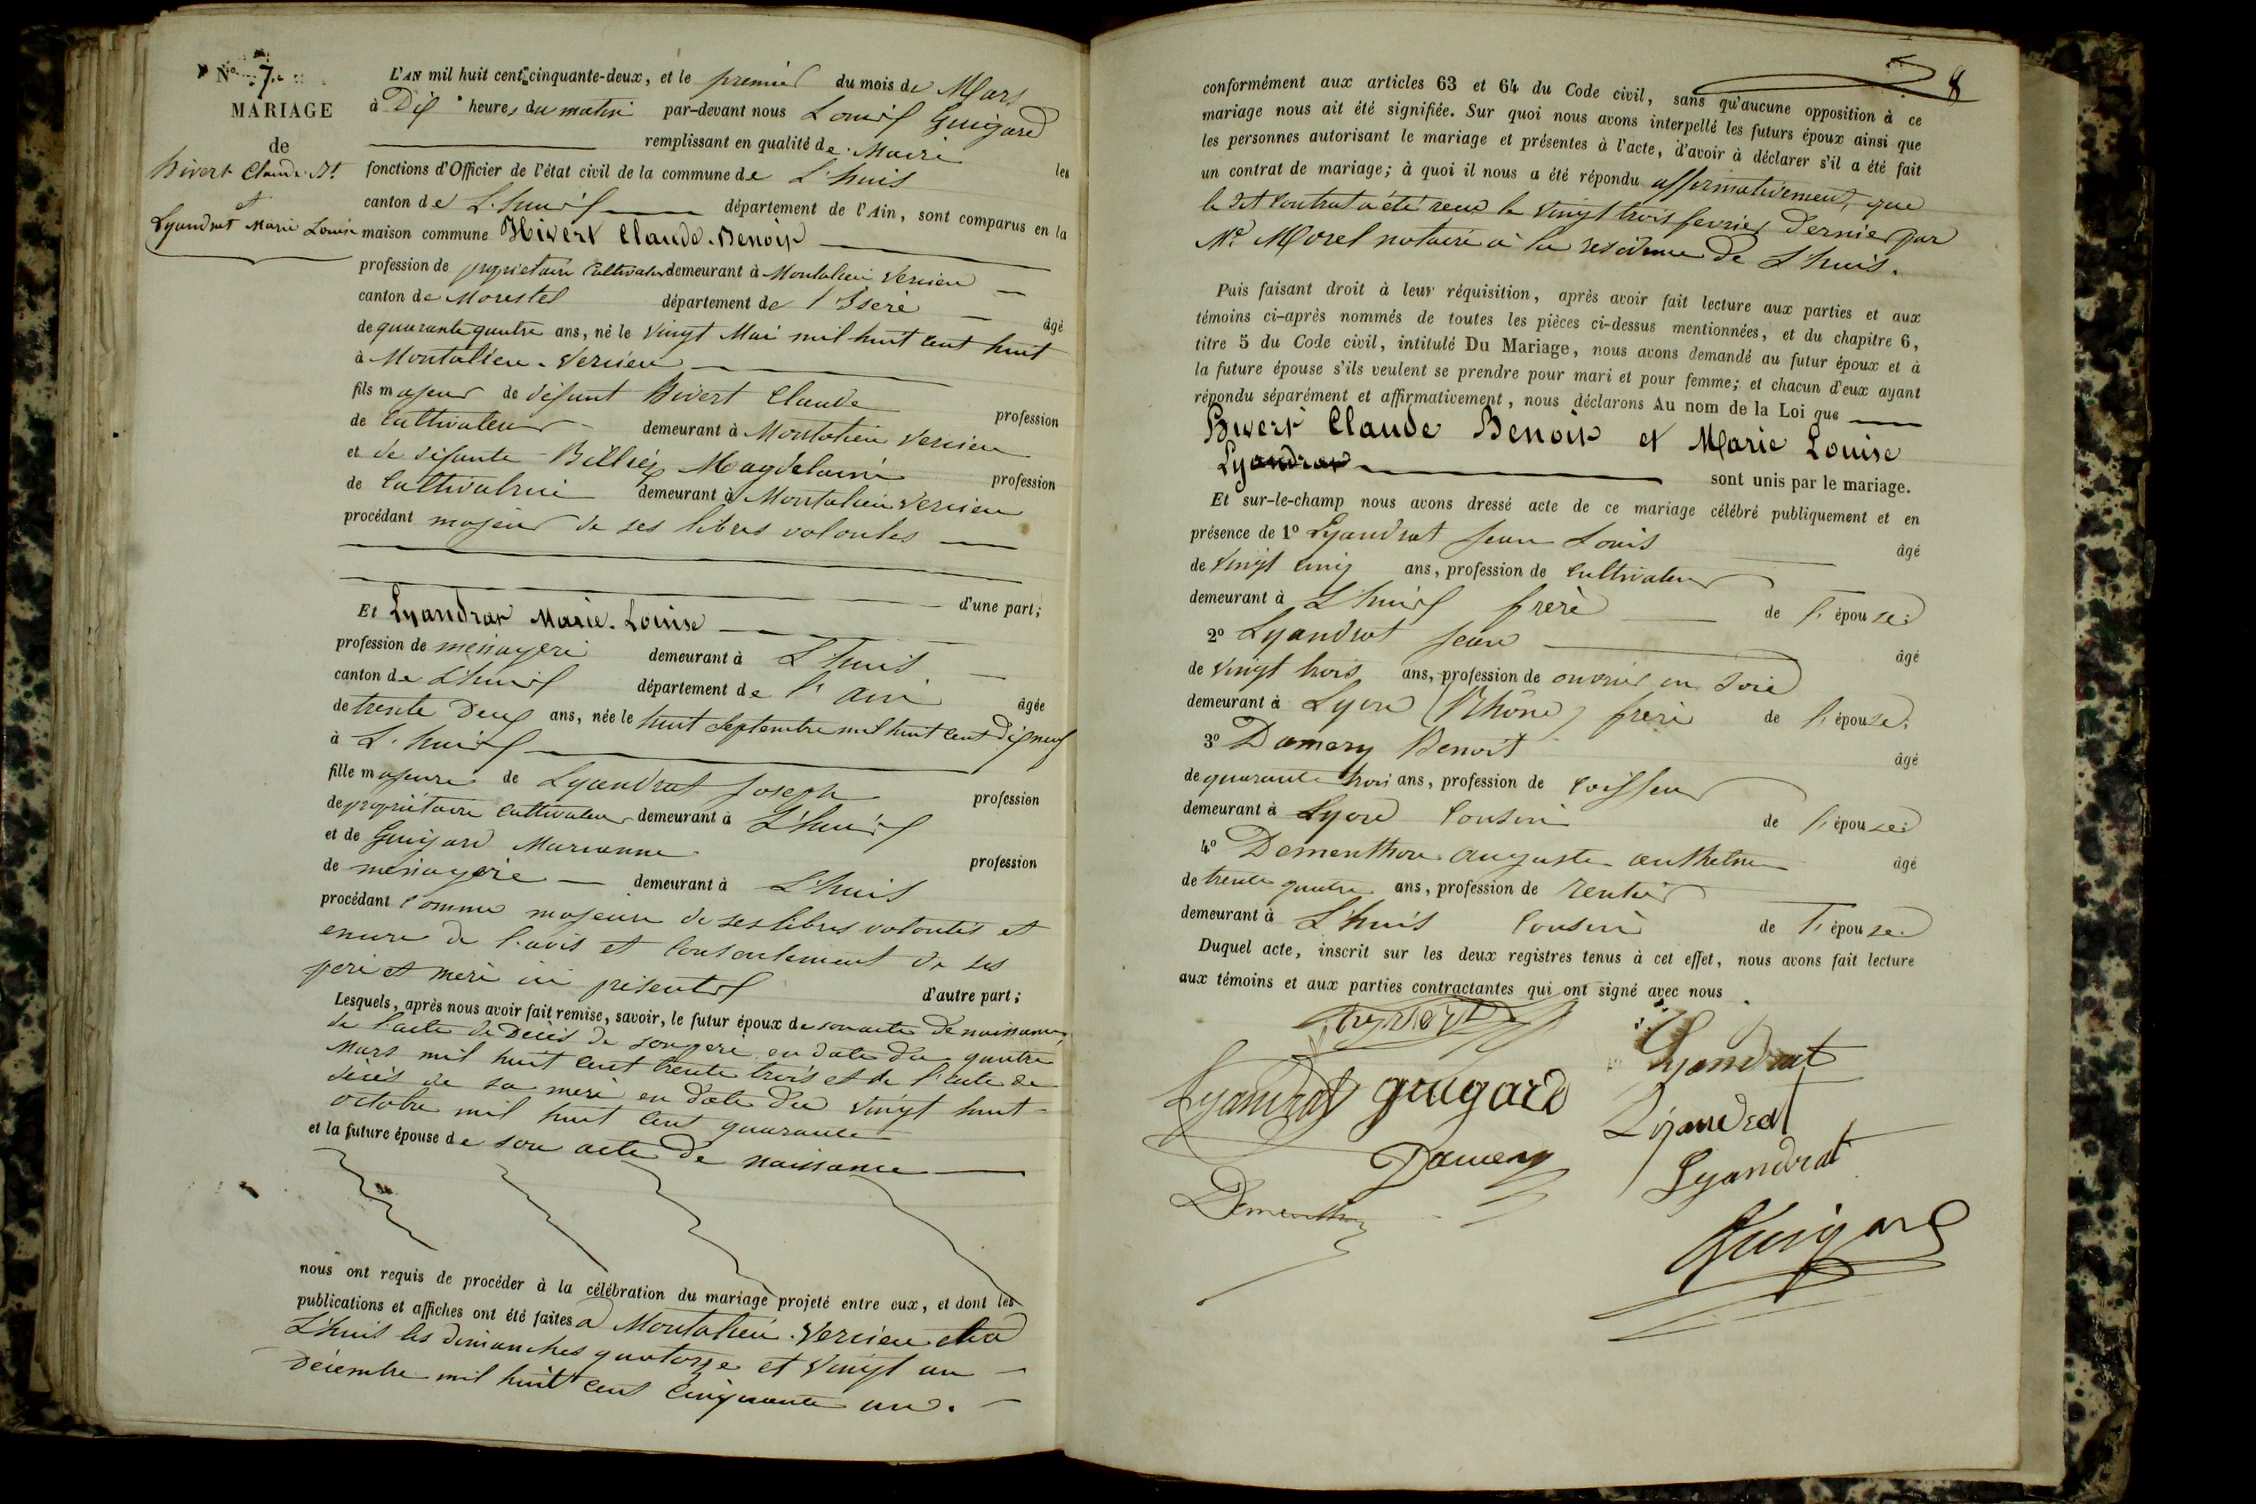 N° 7.
MARIAGE
de
Bivert Claude Bt
et
Lyandrat Marie Louise
L'AN mil huit cent cinquante-deux, et le premier du mois de Mars
à Dix heures du matin par-devant nous Louis Guigard
remplissant en qualité de Maire les
fonctions d'Officier de l'état civil de la commune de L'huis
canton de L'huis département de l'Ain, sont comparus en la
maison commune Bivert Claude-Benoit
profession de propriétaire Cultivateur demeurant à Montalieu Vercieu
canton de Morestel département de l'Isère âgé
de quarante quatre ans, né le vingt Mai mil huit cent huit
à Montalieu-Vercieu
fils majeur de défunt Bivert Claude profession
de Cultivateur demeurant à Montalieu Vercieu
et de défunte Billiez Magdelaine profession
de Cultivatrice demeurant à Montalieu Vercieu
procédant majeur de ses libres volontés
d'une part;
Et Lyandrat Marie-Louise
profession de ménagère demeurant à L'huis
canton de L'huis département de l'ain âgée
de trente Deux ans, née le huit Septembre mil huit cent dix neuf
à L'huis
fille majeure de Lyandrat Joseph profession
de propriétaire cultivateur demeurant à L'huis
et de Guigard Marianne profession
de ménagère demeurant à L'huis
procédant comme majeure de ses libres volontés et
encore de l'avis et consentement de ses
père et mère ici présents d'autre part;
Lesquels, après nous avoir fait remise, savoir, le futur époux de son acte de naissance,
de l'acte de Décès de son père en date du quatre
Mars mil huit cent trente trois et de l'acte de
décès de sa mère en date du vingt huit
octobre mil huit cent quarante
et la future épouse de son acte de naissance
nous ont requis de procéder à la célébration du mariage projeté entre eux, et dont les
publications et affiches ont été faites à Montalieu-Vercieu et à
L'huis les dimanches quatorze et vingt un
Décembre mil huit cent cinquante un.
8
conformément aux articles 63 et 64 du Code civil, sans qu'aucune opposition à ce
mariage nous ait été signifiée. Sur quoi nous avons interpellé les futurs époux ainsi que
les personnes autorisant le mariage et présentes à l'acte, d'avoir à déclarer s'il a été fait
un contrat de mariage; à quoi il nous a été répondu affirmativement, que
le dit contrat a été reçu le vingt trois fevrier dernier par
Me Morel notaire à la résidence de L'huis.
Puis faisant droit à leur réquisition, après avoir fait lecture aux parties et aux
témoins ci-après nommés de toutes les pièces ci-dessus mentionnées, et du chapitre 6,
titre 5 du Code civil, intitulé Du Mariage, nous avons demandé au futur époux et à
la future épouse s'ils veulent se prendre pour mari et pour femme; et chacun d'eux ayant
répondu séparément et affirmativement, nous déclarons Au nom de la Loi que
Bivert Claude Benoit et Marie Louise
Lyandrat sont unis par le mariage.
Et sur-le-champ nous avons dressé acte de ce mariage célébré publiquement et en
présence de 1° Lyandrat Jean Louis âgé
de vingt cinq ans, profession de cultivateur
demeurant à L'huis frère de l'épouse
2° Lyandrat Jean âgé
de vingt trois ans, profession de ouvrier en soie
demeurant à Lyon (Rhône) frère de l'épouse;
3° Damery Benoit âgé
de quarante trois ans, profession de coiffeur
demeurant à Lyon cousin de l'épouse
4° Dementhon auguste anthelme âgé
de trente quatre ans, profession de rentier
demeurant à L'huis cousin de l'épouse
Duquel acte, inscrit sur les deux registres tenus à cet effet, nous avons fait lecture
aux témoins et aux parties contractantes qui ont signé avec nous
Lyandrat
Lyandrat guigard
Liandrat
Damery
Lyandrat
Dementhon
Guigard